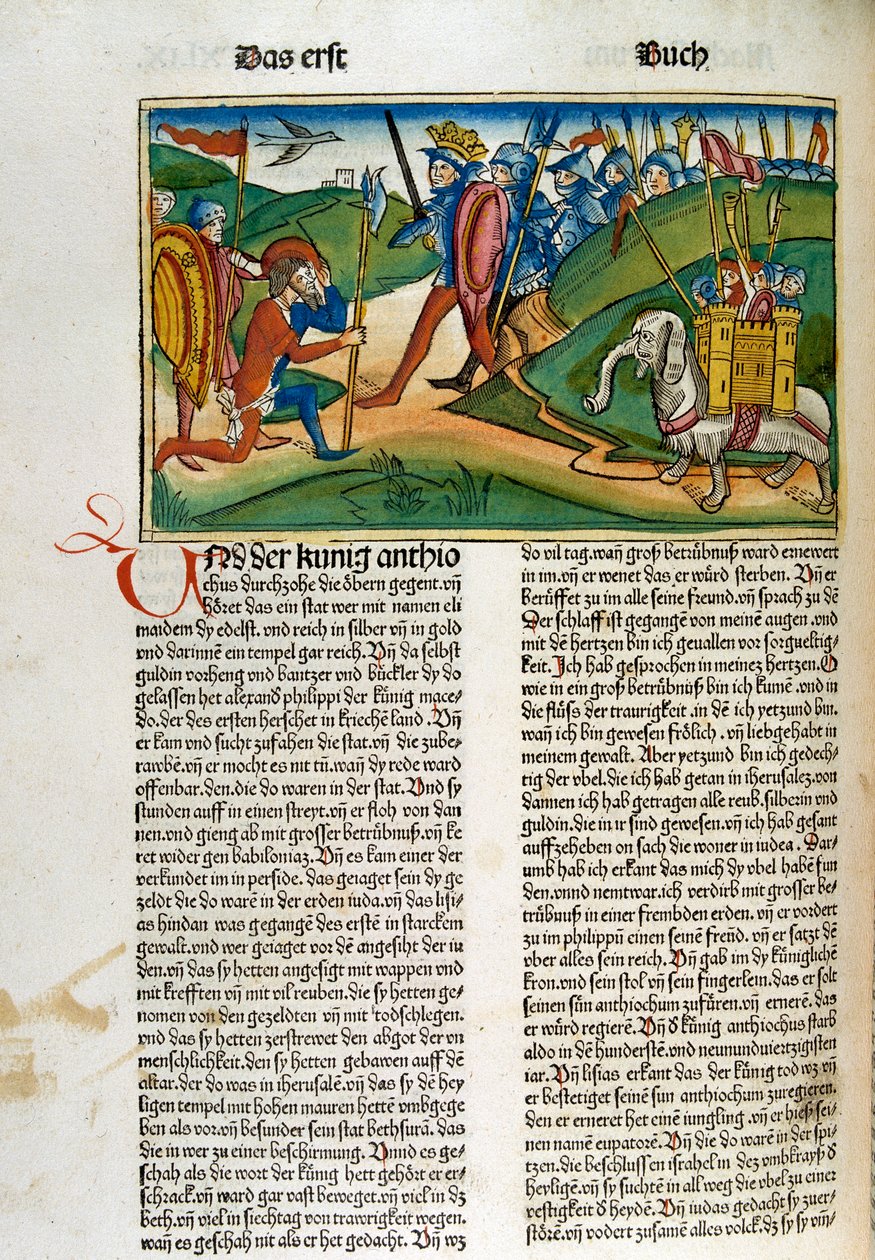 Das erst Buch
UNd der kunig anthio
chus durchzohe die öbern gegent. vñ
höret das ein stat wer mit namen eli
maidem dy edelst. vnd reich in silber vñ in gold
vnd darinnẽ ein tempel gar reich. Vñ da selbst
guldin vorheng vnd bantzer vnd bückler dy do
gelassen het alexanđ philippi der künig mace⸗
do. der des ersten herschet in kriechẽ land. Vñ
er kam vnd sucht zufahen die stat. vñ die zube⸗
rawbẽ. vñ er mocht es nit tů. wañ dy rede ward
offenbar. den. die do waren in der stat. Vnd sy
stunden auff in einen streyt. vñ er floh von dan
nen. vnd gieng ab mit grosser betrůbnuß. vñ ke
ret wider gen babiloniaz. Vñ es kam einer der
verkundet im in perside. das geiaget sein dy ge
zeldt die do warẽ in der erden iuda. vñ das lisi⸗
as hindan was gegangẽ des erstẽ in starckem
gewalt. vnd wer geiaget vor dẽ angesiht der iu
den. vñ das sy hetten angesigt mit wappen vnd
mit krefften vñ mit vil reuben. die sy hetten ge⸗
nomen von den gezeldten vñ mit todschlegen.
vnd das sy hetten zerstrewet den abgot der vn
menschlichkeit. den sy hetten gebawen auff dẽ
altar. der do was in iherusalẽ. vñ das sy dẽ hey
ligen tempel mit hohen mauren hettẽ vmbgege
ben als vor. vñ besunder sein stat bethsurã. das
die in wer zu einer beschirmung. Vnnd es ge⸗
schah als die wort der künig hett gehört er er⸗
schrack. vñ ward gar vast beweget. vñ viel in dz
beth. vñ viel in siechtag von trawrigkeit wegen.
wañ es geschah nit als er het gedacht. Vñ wz
do vil tag. wañ groß betrůbnuß ward ernewert
in im. vñ er wenet das er wůrd sterben. Vñ er
berůffet zu im alle seine freund. vñ sprach zu dẽ
Der schlaff ist gegangẽ von meinẽ augen. vnd
mit dẽ hertzen bin ich geuallen vor sorgueltig⸗
keit. Ich hab gesprochen in meinez hertzen. O
wie in ein groß betrůbnuß bin ich kumẽ. vnd in
die flůss der traurigkeit. in dẽ ich yetzund bin.
wañ ich bin gewesen frölich. vñ liebgehabt in
meinem gewalt. Aber yetzund bin ich gedech⸗
tig der vbel. die ich hab getan in iherusalez. von
dannen ich hab getragen alle reub. silberin vnd
guldin. die in ir sind gewesen. vñ ich hab gesant
auffzeheben on sach die woner in iudea. Dar⸗
umb hab ich erkant das mich dy vbel habẽ fun
den. vnnd nemtwar. ich verdirb mit grosser be⸗
trůbnuß in einer frembden erden. vñ er vordert
zu im philippũ einen seinẽ freñd. vñ er satzt dẽ
vber alles sein reich. Vñ gab im dy kůniglichẽ
kron. vnd sein stol vñ sein fingerlein. das er solt
seinen sůn anthiochum zufůren. vñ ernerẽ. das
er wůrd regierẽ. Vñ đ künig anthiochus starb
aldo in dẽ hunderstẽ. vnd neunundviertzigisten
iar. Vñ lisias erkant das der künig tod wz vñ
er bestetiget seinẽ sun anthiochum zuregieren.
den er erneret het einẽ iungling. vñ er hieß sei⸗
nen namẽ eupatorẽ. Vñ die do warẽ in der spi⸗
tzen. die beschlussen israhel in dez vmbkrayß đ
heyligẽ. vñ sy suchtẽ in all weg die vbel zu einer
vestigkeit đ heydẽ. Vñ iudas gedacht sy zuer⸗
störẽ. vñ vodert zusamẽ alles volck. dz sy sy vm̃⸗